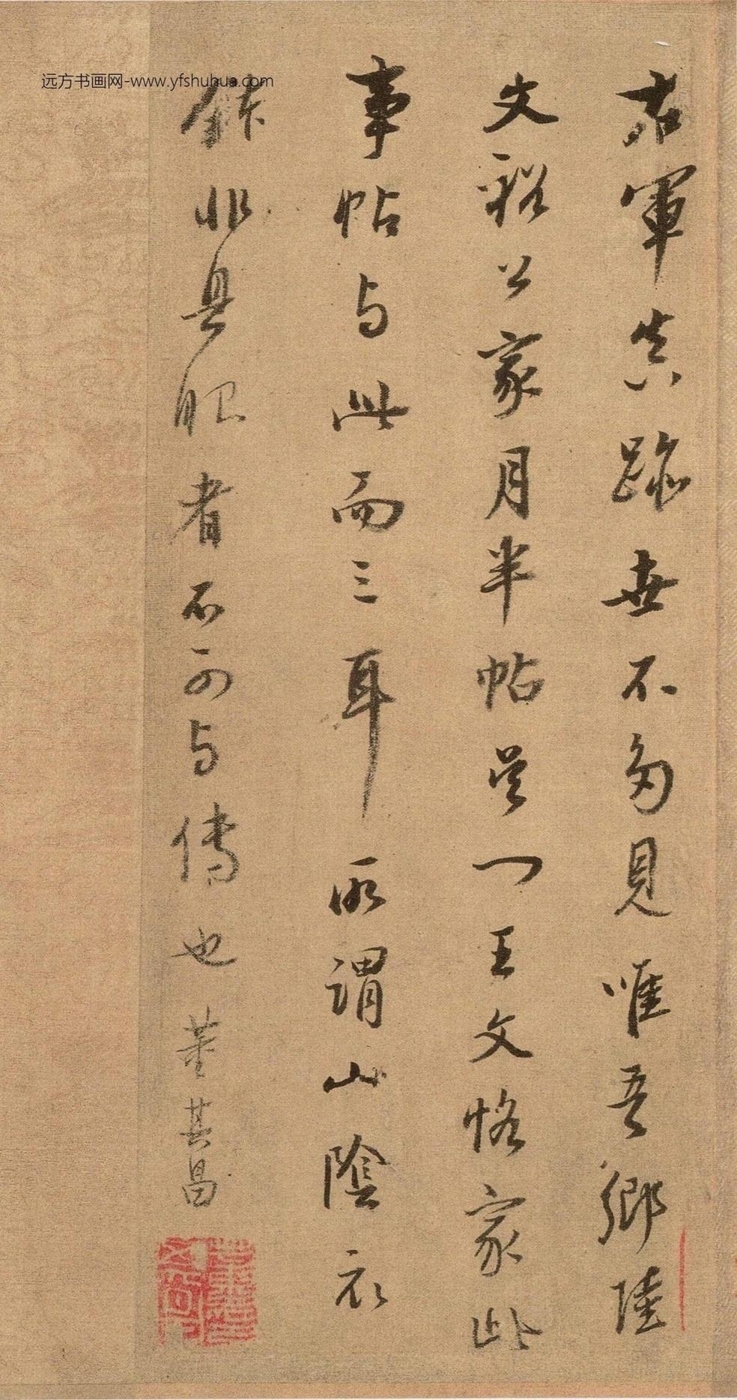 远方书画网-www.yfshuhua.com
右軍真跡世不多見唯吾鄉陸
文裕公家月半帖吳门王文恪家此
事帖与此而三耳所謂山陰衣
鉢非具眼者不可与傳也董其昌